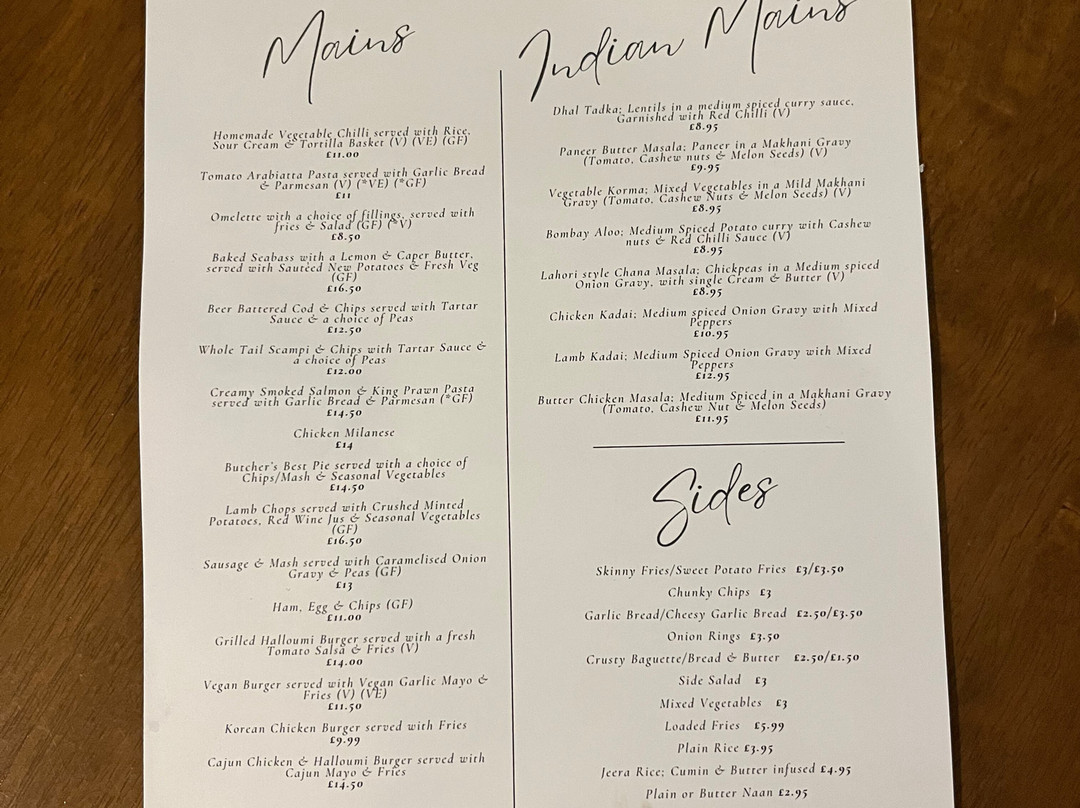 Mains
Homemade Vegetable Chilli served with Rice,
Sour Cream & Tortilla Basket (V) (VE) (GF)
£11.00
Tomato Arabiatta Pasta served with Garlic Bread
& Parmesan (V) (*VE) (*GF)
£11
Omelette with a choice of fillings, served with
fries & Salad (GF) (*V)
£8.50
Baked Seabass with a Lemon & Caper Butter,
served with Sauteed New Potatoes & Fresh Veg
(GF)
£16.50
Beer Battered Cod & Chips served with Tartar
Sauce & a choice of Peas
£12.50
Whole Tail Scampi & Chips with Tartar Sauce &
a choice of Peas
£12.00
Creamy Smoked Salmon & King Prawn Pasta
served with Garlic Bread & Parmesan (*GF)
£14.50
Chicken Milanese
£14
Butcher's Best Pie served with a choice of
Chips/Mash & Seasonal Vegetables
£14.50
Lamb Chops served with Crushed Minted
Potatoes, Red Wine Jus & Seasonal Vegetables
(GF)
£16.50
Sausage & Mash served with Caramelised Onion
Gravy & Peas (GF)
£13
Ham, Egg & Chips (GF)
£11.00
Grilled Halloumi Burger served with a fresh
Tomato Salsa & Fries (V)
£14.00
Vegan Burger served with Vegan Garlic Mayo &
Fries (V) (VE)
£11.50
Korean Chicken Burger served with Fries
£9.99
Cajun Chicken & Halloumi Burger served with
Cajun Mayo & Fries
£14.50
Indian Mains
Dhal Tadka; Lentils in a medium spiced curry sauce,
Garnished with Red Chilli (V)
£8.95
Paneer Butter Masala; Paneer in a Makhani Gravy
(Tomato, Cashew nuts & Melon Seeds) (V)
£9.95
Vegetable Korma; Mixed Vegetables in a Mild Makhani
Gravy (Tomato, Cashew Nuts & Melon Seeds) (V)
£8.95
Bombay Aloo; Medium Spiced Potato curry with Cashew
nuts & Red Chilli Sauce (V)
£8.95
Lahori style Chana Masala; Chickpeas in a Medium spiced
Onion Gravy, with single Cream & Butter (V)
£8.95
Chicken Kadai; Medium spiced Onion Gravy with Mixed
Peppers
£10.95
Lamb Kadai; Medium Spiced Onion Gravy with Mixed
Peppers
£12.95
Butter Chicken Masala; Medium Spiced in a Makhani Gravy
(Tomato, Cashew Nut & Melon Seeds)
£11.95
Sides
Skinny Fries/Sweet Potato Fries £3/£3.50
Chunky Chips £3
Garlic Bread/Cheesy Garlic Bread £2.50/£3.50
Onion Rings £3.50
Crusty Baguette/Bread & Butter £2.50/£1.50
Side Salad £3
Mixed Vegetables £3
Loaded Fries £5.99
Plain Rice £3.95
Jeera Rice; Cumin & Butter infused £4.95
Plain or Butter Naan £2.95